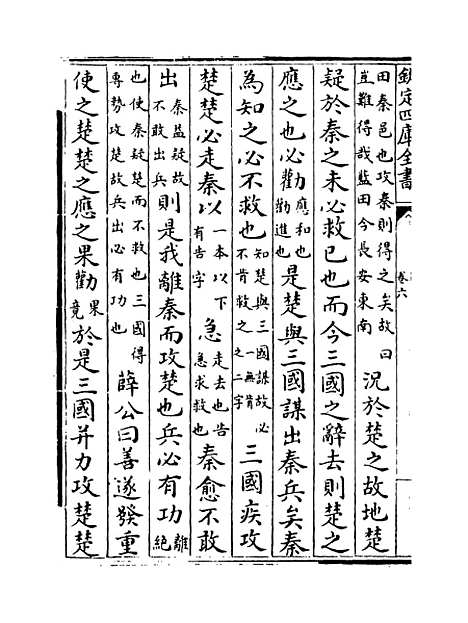 欽定四庫全書
卷六
田秦邑也攻秦則得之矣故曰豈難得哉藍田今長安東南況於楚之故地楚
疑於秦之未必救已也而今三國之辭去則楚之
應之也必勸應和也勸進也是楚與三國謀出秦兵矣秦
為知之必不救也知楚與三國謀故必不肯救之一無肯之二字三國疾攻
楚楚必走秦以一本以下有告字急走去也告急求救也秦愈不敢
出秦益疑故不敢出兵則是我離秦而攻楚也兵必有功離絶
也使秦疑楚而不救也三國得專勢攻楚故兵出必有功也薛公曰善遂發重
使之楚楚之應之果勸果竟於是三國并力攻楚楚